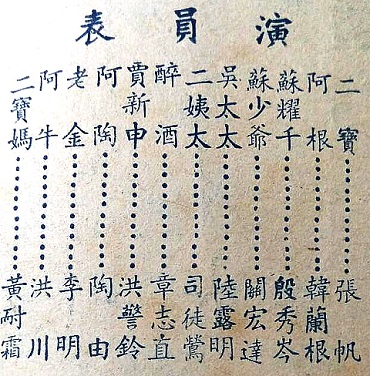 演員表
二寶⋯⋯⋯⋯張帆
阿根⋯⋯⋯⋯韓蘭根
蘇耀千⋯⋯⋯⋯殷秀岑
蘇少爺⋯⋯⋯⋯關宏達
吳太太⋯⋯⋯⋯陸露明
二姨太⋯⋯⋯⋯司徒鶯
醉酒⋯⋯⋯⋯章志直
賈新申⋯⋯⋯⋯洪警鈴
阿陶⋯⋯⋯⋯陶由
老金⋯⋯⋯⋯李明
阿牛⋯⋯⋯⋯洪川
二寶媽⋯⋯⋯⋯黃耐霜